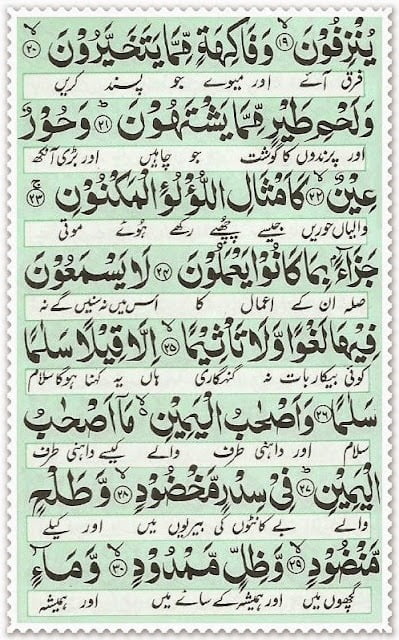 یُنْزِفُوْنَ ﴿۱۹﴾ وَفَاكِهَةٍ مِّمَّا یَتَخَیَّرُوْنَ ﴿۲۰﴾
فرق آئے اور میوے جو پسند کریں
وَلَحْمِ طَیْرٍ مِّمَّا یَشْتَهُوْنَ ﴿۲۱﴾ وَحُوْرٌ
اور پرندوں کا گوشت جو چاہیں اور بڑی آنکھ
عِیْنٌ ﴿۲۲﴾ كَاَمْثَالِ اللُّؤْلُؤِ الْمَكْنُوْنِ ﴿۲۳﴾
والیاں حوریں جیسے چھپے رکھے ہوئے موتی
جَزَآءًۢ بِمَا كَانُوْا یَعْمَلُوْنَ ﴿۲۴﴾ لَا یَسْمَعُوْنَ
صلہ ان کے اعمال کا اس میں نہ سنیں گے نہ
فِیْهَا لَغْوًا وَّلَا تَاْثِیْمًا ﴿۲۵﴾ اِلَّا قِیْلًا سَلٰمًا
کوئی بیکار بات نہ گنہگاری ہاں یہ کہنا ہوگا سلام
سَلٰمًا ﴿۲۶﴾ وَاَصْحٰبُ الْیَمِیْنِ مَاۤ اَصْحٰبُ
سلام اور داہنی طرف والے کیسے داہنی طرف
الْیَمِیْنِ ﴿۲۷﴾ فِیْ سِدْرٍ مَّخْضُوْدٍ ﴿۲۸﴾ وَّطَلْحٍ
والے بے کانٹوں کی بیریوں میں اور کیلے
مَّنْضُوْدٍ ﴿۲۹﴾ وَّظِلٍّ مَّمْدُوْدٍ ﴿۳۰﴾ وَّمَآءٍ
گچھوں میں اور ہمیشہ کے سائے میں اور ہمیشہ